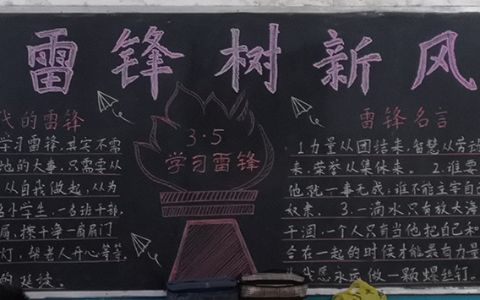 雷锋树新风
我的雷锋
学习雷锋,其实不需
地的大事,只需要从
从自我做起,从为
小学生,一名班干部,
肩,擦干净一扇门
灯,帮老人开心等等,
的延续。
3·5
学习雷锋
雷锋名言
1.力量从团结来,智慧从劳动
来,荣誉从集体来。2.谁要
他就一事无成;谁不能主宰自己
奴隶。3.一滴水只有放大海
干涸,一个人只有当他把自己和
合在一起的时候才能最有力量
我愿永远做一颗螺丝钉。